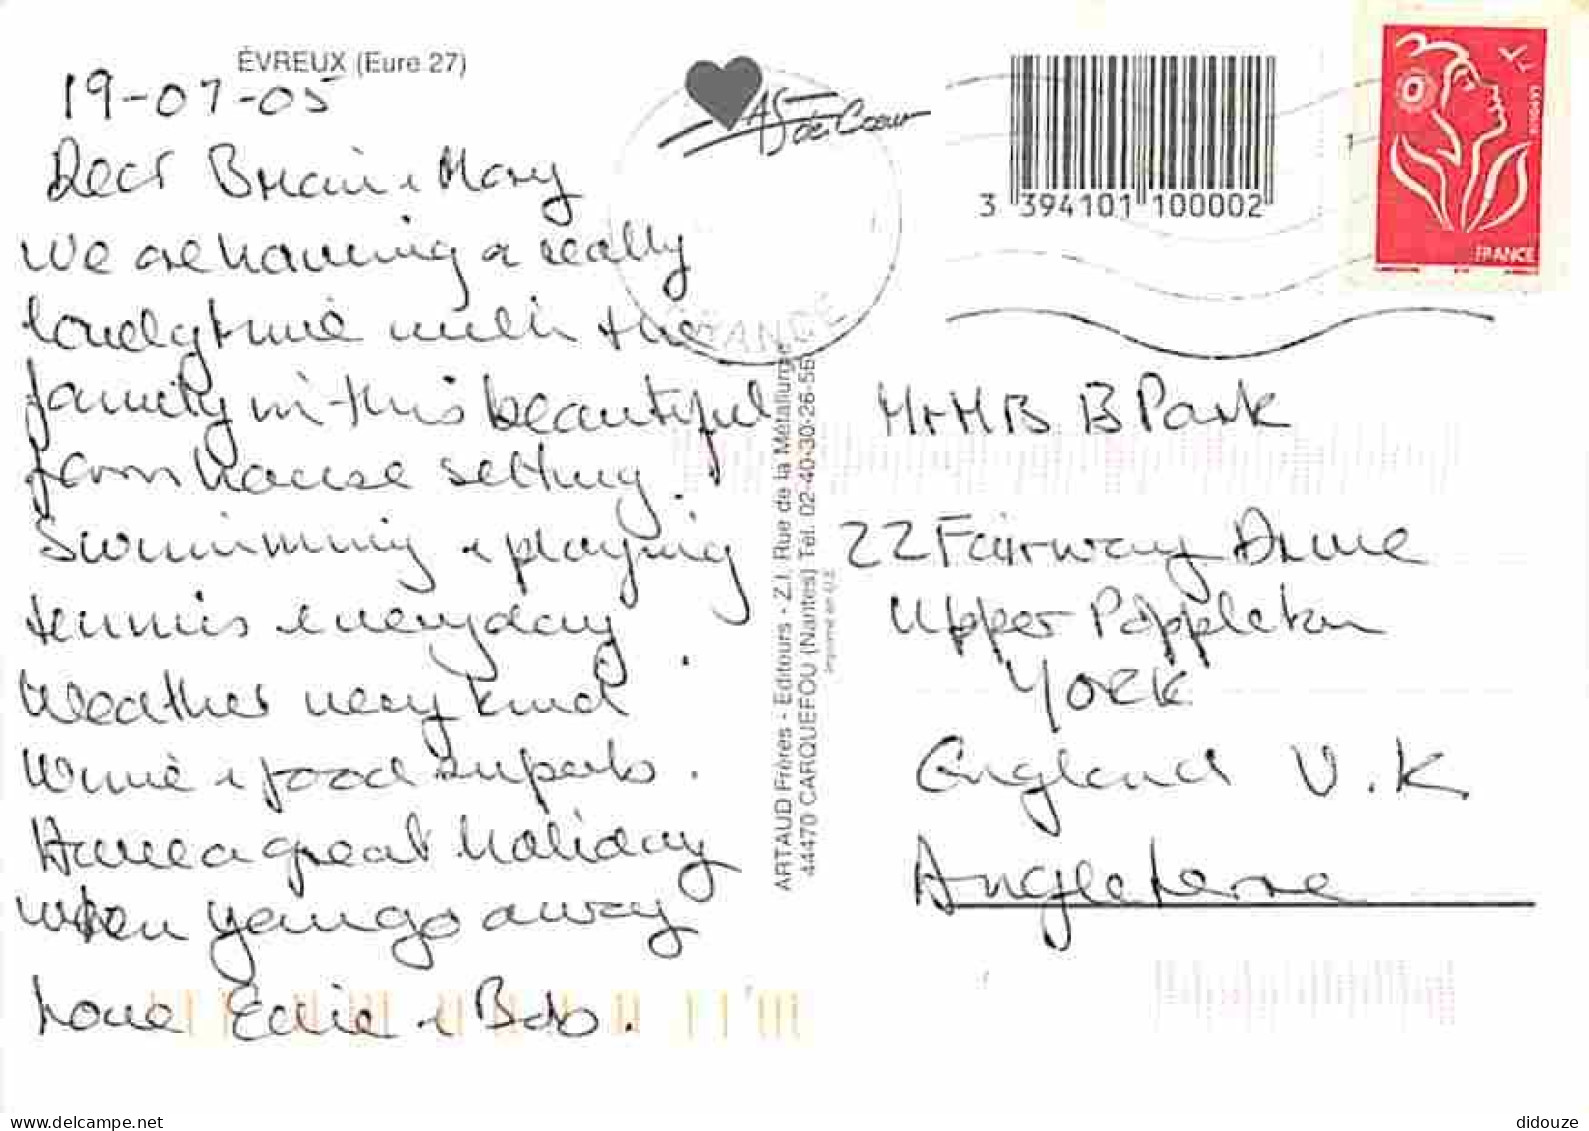 ÉVREUX (Eure 27)
19-07-05
Dear Brian & Mary
We are having a really
lovely time with the
family in this beautiful
farmhouse setting.
Swimming & playing
tennis everyday.
Weather very kind
Wine & food superb.
Have a great holiday
when you go away
Love Edie & Bob.
As de Cœur
3 394101 100002
LAPOSTE
FRANCE
ARTAUD Frères - Editeurs - Z.I. Rue de la Métallurgie
44470 CARQUEFOU (Nantes) Tél. 02-40-30-26-56
Imprimé en U.E.
B Park
22 Fairway Drive
Upper Poppleton
YORK
England U.K.
Angleterre
www.delcampe.net
didouze